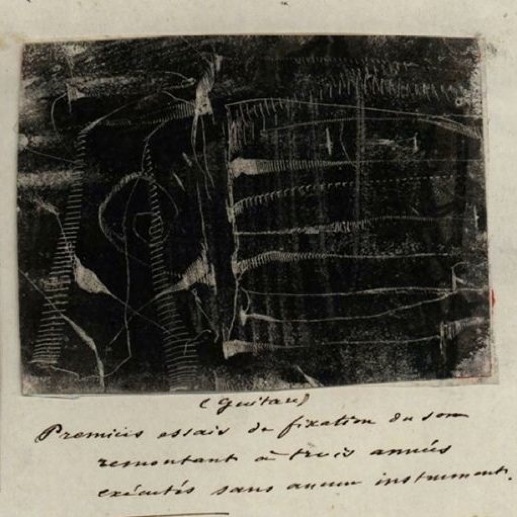 (Guitare)
Premiers essais de fixation du son
remontant à trois années
exécutés sans aucun instrument.